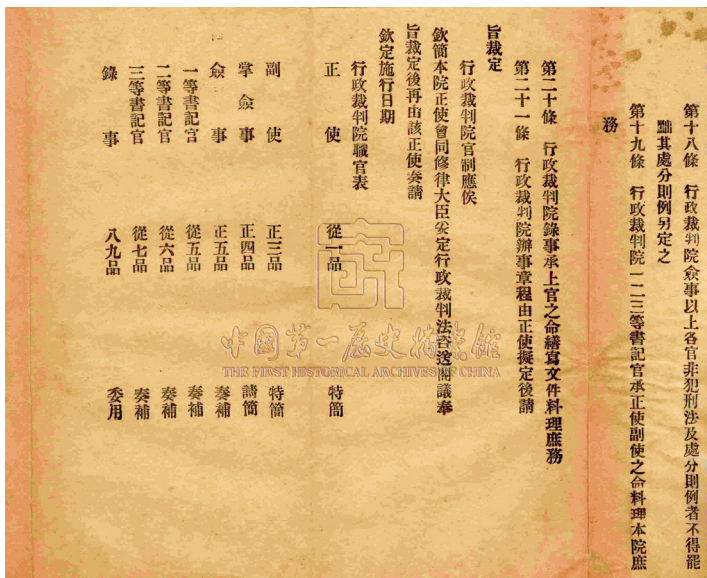 第十八條　行政裁判院僉事以上各官非犯刑法及處分則例者不得罷
黜其處分則例另定之
第十九條　行政裁判院一二三等書記官承正使副使之命料理本院庶
務
第二十條　行政裁判院錄事承上官之命繕寫文件料理庶務
第二十一條　行政裁判院辦事章程由正使擬定後請
旨裁定
行政裁判院官制應俟
欽簡本院正使會同修律大臣妥定行政裁判法咨送閣議奉
旨裁定後再由該正使奏請
欽定施行日期
行政裁判院職官表
正使　從一品　特簡
副使　正三品　特簡
掌僉事　正四品　請簡
僉事　正五品　奏補
一等書記官　從五品　奏補
二等書記官　從六品　奏補
三等書記官　從七品　奏補
錄事　八九品　委用
中國第一歷史檔案館
THE FIRST HISTORICAL ARCHIVES OF CHINA